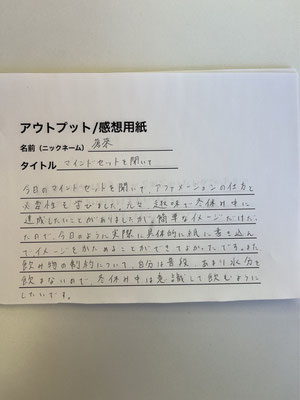 アウトプット/感想用紙
名前（ニックネーム）
タイトル マインドセットを聞いて
今日のマインドセットを聞いて、アファメーションの仕方と
必要性を学びました。元々、趣味で冬休み中に
達成したいことがありましたが、簡単なイメージだけだっ
たので、今日のように実際に具体的に紙に書き込ん
でイメージをかためることができてよかったです。また
飲み物の制約について、自分は普段、あまり水分を
飲まないので、冬休み中は意識して飲むように
したいです。